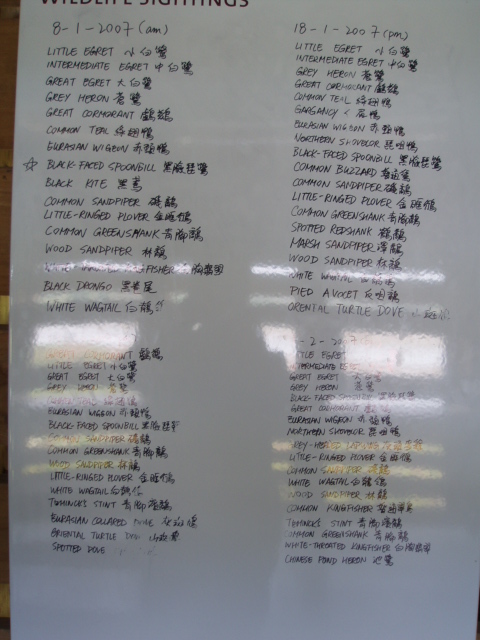 WILDLIFE SIGHTINGS
8-1-2007 (am)
LITTLE EGRET 小白鷺
INTERMEDIATE EGRET 中白鷺
GREAT EGRET 大白鷺
GREY HERON 蒼鷺
GREAT CORMORANT 鸕鶿
COMMON TEAL 綠翅鴨
EURASIAN WIGEON 赤頸鴨
☆ BLACK-FACED SPOONBILL 黑臉琵鷺
BLACK KITE 黑鳶
COMMON SANDPIPER 磯鷸
LITTLE-RINGED PLOVER 金眶鴴
COMMON GREENSHANK 青腳鷸
WOOD SANDPIPER 林鷸
WHITE
BLACK DRONGO 黑卷尾
WHITE WAGTAIL 白鶺鴒
18-1-2007 (pm)
LITTLE EGRET 小白鷺
INTERMEDIATE EGRET 中白鷺
GREY HERON 蒼鷺
GREAT CORMORANT 鸕鶿
COMMON TEAL 綠翅鴨
GARGANEY
EURASIAN WIGEON 赤頸鴨
NORTHERN SHOVELOR 琵咀鴨
BLACK-FACED SPOONBILL 黑臉琵鷺
COMMON BUZZARD
COMMON SANDPIPER 磯鷸
LITTLE-RINGED PLOVER 金眶鴴
COMMON GREENSHANK 青腳鷸
SPOTTED REDSHANK 鶴鷸
MARSH SANDPIPER 澤鷸
WOOD SANDPIPER 林鷸
WHITE WAGTAIL
PIED AVOCET 反咀鷸
ORENTAL TURTLE DOVE
CORMORANT
LITTLE EGRET 小白鷺
GREAT EGRET 大白鷺
GREY HERON 蒼鷺
EURASIAN WIGEON 赤頸鴨
BLACK-FACED SPOONBILL 黑臉琵鷺
SANDPIPER 磯鷸
COMMON GREENSHANK 青腳鷸
WOOD SANDPIPER 林鷸
LITTLE-RINGED PLOVER 金眶鴴
WHITE WAGTAIL 白鶺鴒
TEMMINCK'S STINT
EURASIAN COLLARED
ORIENTAL TURTLE
SPOTTED DOVE
-2-2007
LITTLE EGRET
INTERMEDIATE
GREAT EGRET 大白鷺
GREY HERON 蒼鷺
BLACK-FACED SPOONBILL
GREAT CORMORANT
EURASIAN WIGEON 赤頸鴨
NORTHERN SHOVELOR 琵咀鴨
GREY-HEADED
LITTLE-RINGED PLOVER 金眶鴴
COMMON SANDPIPER 磯鷸
WHITE WAGTAIL 白鶺鴒
WOOD SANDPIPER 林鷸
COMMON KINGFISHER
TEMMINCK'S STINT
COMMON GREENSHANK 青腳鷸
WHITE-THROATED KINGFISHER
CHINESE POND HERON 池鷺